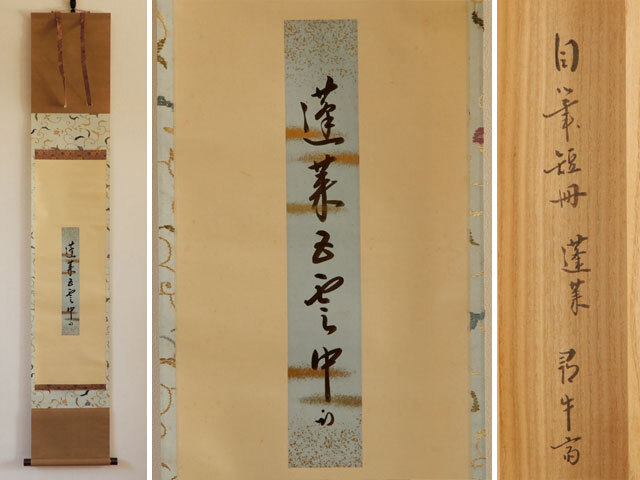 蓬莱五雲中
自筆短冊 蓬莱 尋牛斎